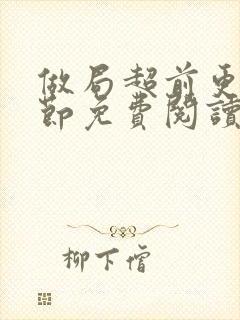 做局超前更
節免費閱讀
柳下僧